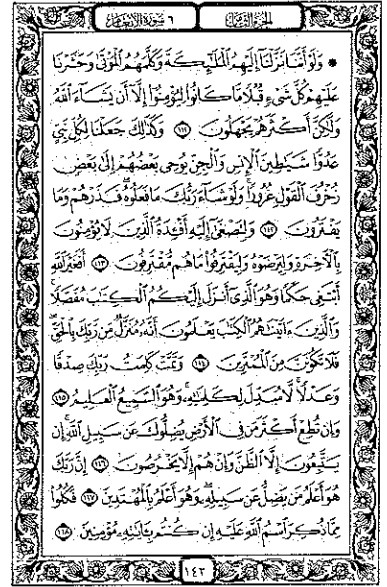 الجزء الثامن ٦ سورة الأنعام
۞ وَلَوْ أَنَّنَا نَزَّلْنَا إِلَيْهِمُ الْمَلَٰٓئِكَةَ وَكَلَّمَهُمُ الْمَوْتَىٰ وَحَشَرْنَا
عَلَيْهِمْ كُلَّ شَىْءٍ قُبُلًا مَّا كَانُوا۟ لِيُؤْمِنُوٓا۟ إِلَّآ أَن يَشَآءَ اللَّهُ
وَلَٰكِنَّ أَكْثَرَهُمْ يَجْهَلُونَ ١١١ وَكَذَٰلِكَ جَعَلْنَا لِكُلِّ نَبِىٍّ
عَدُوًّا شَيَٰطِينَ الْإِنسِ وَالْجِنِّ يُوحِى بَعْضُهُمْ إِلَىٰ بَعْضٍ
زُخْرُفَ الْقَوْلِ غُرُورًا وَلَوْ شَآءَ رَبُّكَ مَا فَعَلُوهُ فَذَرْهُمْ وَمَا
يَفْتَرُونَ ١١٢ وَلِتَصْغَىٰٓ إِلَيْهِ أَفْـِٔدَةُ الَّذِينَ لَا يُؤْمِنُونَ
بِالْءَاخِرَةِ وَلِيَرْضَوْهُ وَلِيَقْتَرِفُوا۟ مَا هُم مُّقْتَرِفُونَ ١١٣ أَفَغَيْرَ اللَّهِ
أَبْتَغِى حَكَمًا وَهُوَ الَّذِىٓ أَنزَلَ إِلَيْكُمُ الْكِتَٰبَ مُفَصَّلًا
وَالَّذِينَ ءَاتَيْنَٰهُمُ الْكِتَٰبَ يَعْلَمُونَ أَنَّهُۥ مُنَزَّلٌ مِّن رَّبِّكَ بِالْحَقِّ
فَلَا تَكُونَنَّ مِنَ الْمُمْتَرِينَ ١١٤ وَتَمَّتْ كَلِمَتُ رَبِّكَ صِدْقًا
وَعَدْلًا لَّا مُبَدِّلَ لِكَلِمَٰتِهِۦ وَهُوَ السَّمِيعُ الْعَلِيمُ ١١٥
وَإِن تُطِعْ أَكْثَرَ مَن فِى الْأَرْضِ يُضِلُّوكَ عَن سَبِيلِ اللَّهِ إِن
يَتَّبِعُونَ إِلَّا الظَّنَّ وَإِنْ هُمْ إِلَّا يَخْرُصُونَ ١١٦ إِنَّ رَبَّكَ
هُوَ أَعْلَمُ مَن يَضِلُّ عَن سَبِيلِهِۦ وَهُوَ أَعْلَمُ بِالْمُهْتَدِينَ ١١٧ فَكُلُوا۟
مِمَّا ذُكِرَ اسْمُ اللَّهِ عَلَيْهِ إِن كُنتُم بِـَٔايَٰتِهِۦ مُؤْمِنِينَ ١١٨
١٤٢